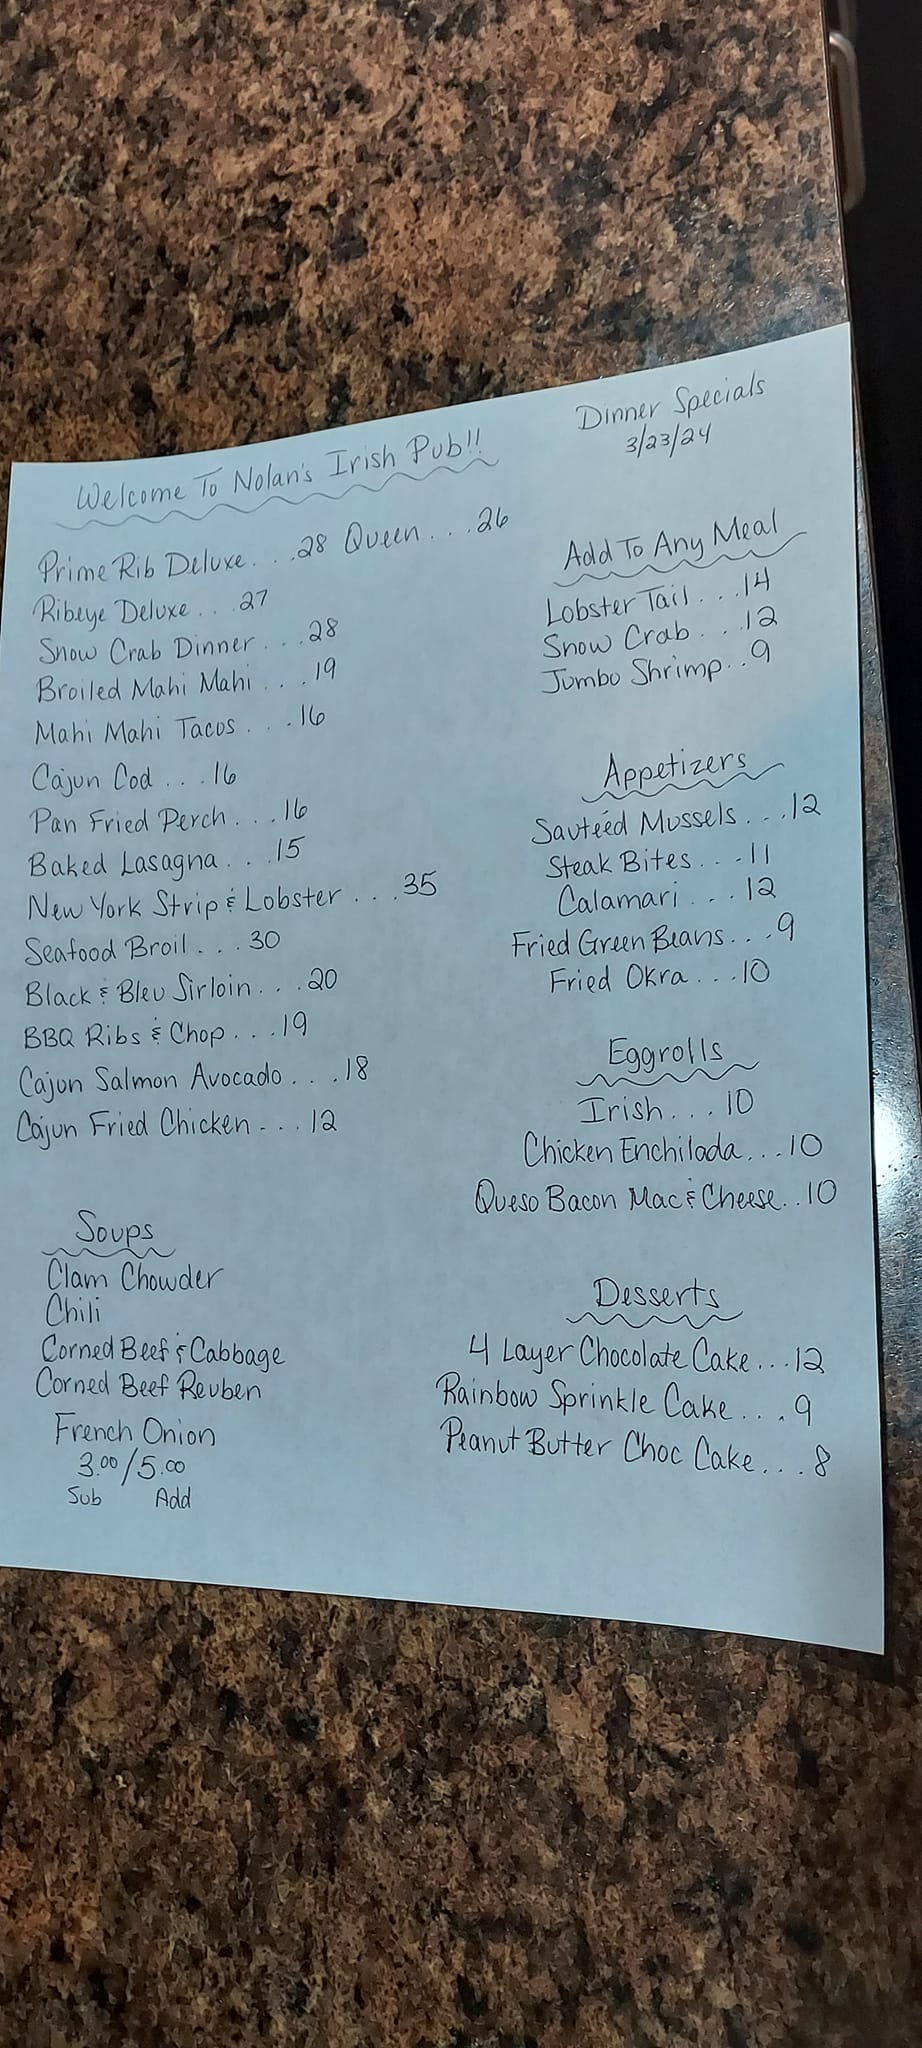 Welcome To Nolan's Irish Pub!!
Dinner Specials
3/23/24
Prime Rib Deluxe...28 Queen...26
Ribeye Deluxe...27
Snow Crab Dinner...28
Broiled Mahi Mahi...19
Mahi Mahi Tacos...16
Cajun Cod...16
Pan Fried Perch...16
Baked Lasagna...15
New York Strip & Lobster...35
Seafood Broil...30
Black & Bleu Sirloin...20
BBQ Ribs & Chop...19
Cajun Salmon Avocado...18
Cajun Fried Chicken...12
Soups
Clam Chowder
Chili
Corned Beef & Cabbage
Corned Beef Reuben
French Onion
3.00/5.00
Sub Add
Add To Any Meal
Lobster Tail...14
Snow Crab...12
Jumbo Shrimp..9
Appetizers
Sautéed Mussels...12
Steak Bites...11
Calamari...12
Fried Green Beans...9
Fried Okra...10
Eggrolls
Irish...10
Chicken Enchilada...10
Queso Bacon Mac & Cheese..10
Desserts
4 Layer Chocolate Cake...12
Rainbow Sprinkle Cake...9
Peanut Butter Choc Cake...8